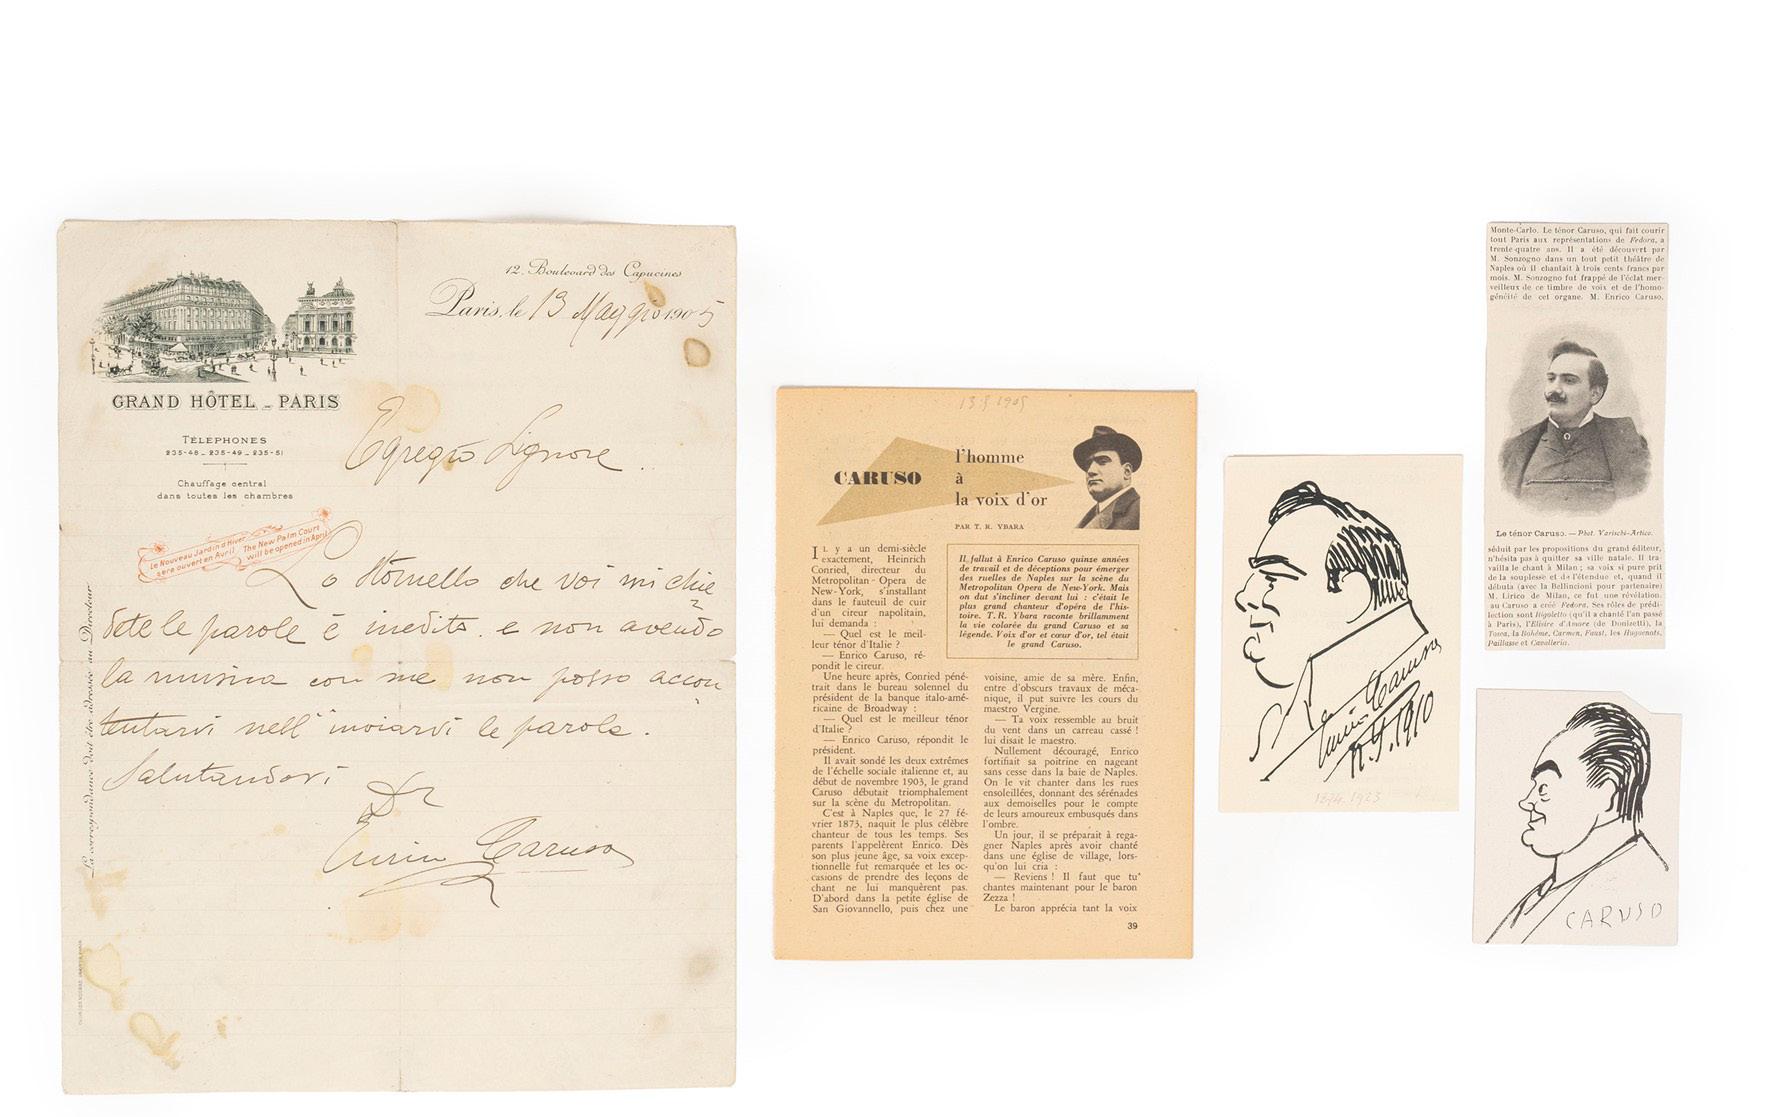 12. Boulevard des Capucines
Paris, le 13 Maggio 1905
GRAND HÔTEL - PARIS
TÉLÉPHONES
235-48 _ 235-49 _ 235-51
Chauffage central
dans toutes les chambres
Le Nouveau Jardin d'Hiver
sera ouvert en Avril
The New Palm Court
will be opened in April
La correspondance doit être adressée au Directeur
Egregio Signore.
Lo stornello che voi mi chie
dete le parole è inedito e non avendo
la musica con me non posso accon
tentarvi nell'inviarvi le parole.
Salutandovi
Enrico Caruso
13.5 1905
CARUSO
l'homme
à
la voix d'or
PAR T. R. YBARA
IL y a un demi-siècle
exactement, Heinrich
Conried, directeur du
Metropolitan-Opera de
New-York, s'installant
dans le fauteuil de cuir
d'un cireur napolitain,
lui demanda :
— Quel est le meil-
leur ténor d'Italie ?
— Enrico Caruso, ré-
pondit le cireur.
Une heure après, Conried péné-
trait dans le bureau solennel du
président de la banque italo-amé-
ricaine de Broadway :
— Quel est le meilleur ténor
d'Italie ?
— Enrico Caruso, répondit le
président.
Il avait sondé les deux extrêmes
de l'échelle sociale italienne et, au
début de novembre 1903, le grand
Caruso débutait triomphalement
sur la scène du Metropolitan.
C'est à Naples que, le 27 fé-
vrier 1873, naquit le plus célèbre
chanteur de tous les temps. Ses
parents l'appelèrent Enrico. Dès
son plus jeune âge, sa voix excep-
tionnelle fut remarquée et les oc-
casions de prendre des leçons de
chant ne lui manquèrent pas.
D'abord dans la petite église de
San Giovannello, puis chez une
Il fallut à Enrico Caruso quinze années
de travail et de déceptions pour émerger
des ruelles de Naples sur la scène du
Metropolitan Opera de New-York. Mais
on dut s'incliner devant lui : c'était le
plus grand chanteur d'opéra de l'his-
toire. T.R. Ybara raconte brillamment
la vie colorée du grand Caruso et sa
légende. Voix d'or et cœur d'or, tel était
le grand Caruso.
voisine, amie de sa mère. Enfin,
entre d'obscurs travaux de méca-
nique, il put suivre les cours du
maestro Vergine.
— Ta voix ressemble au bruit
du vent dans un carreau cassé !
lui disait le maestro.
Nullement découragé, Enrico
fortifiait sa poitrine en nageant
sans cesse dans la baie de Naples.
On le vit chanter dans les rues
ensoleillées, donnant des sérénades
aux demoiselles pour le compte
de leurs amoureux embusqués dans
l'ombre.
Un jour, il se préparait à rega-
gner Naples après avoir chanté
dans une église de village, lors-
qu'on lui cria :
— Reviens ! Il faut que tu
chantes maintenant pour le baron
Zezza !
Le baron apprécia tant la voix
39
Enrico Caruso
N.Y. 1910
Monte-Carlo. Le ténor Caruso, qui fait courir
tout Paris aux représentations de Fedora, a
trente-quatre ans. Il a été découvert par
M. Sonzogno dans un tout petit théâtre de
Naples où il chantait à trois cents francs par
mois. M. Sonzogno fut frappé de l'éclat mer-
veilleux de ce timbre de voix et de l'homo-
généité de cet organe. M. Enrico Caruso,
Le ténor Caruso. — Phot. Varischi-Artico.
séduit par les propositions du grand éditeur,
n'hésita pas à quitter sa ville natale. Il tra-
vailla le chant à Milan ; sa voix si pure prit
de la souplesse et de l'étendue et, quand il
débuta (avec la Bellincioni pour partenaire)
M. Lirico de Milan, ce fut une révélation.
au Caruso a créé Fedora. Ses rôles de prédi-
lection sont Rigoletto (qu'il a chanté l'an passé
à Paris), l'Elisire d'Amore (de Donizetti), la
Tosca, la Bohême, Carmen, Faust, les Huguenots,
Paillasse et Cavalleria.
CARUSO